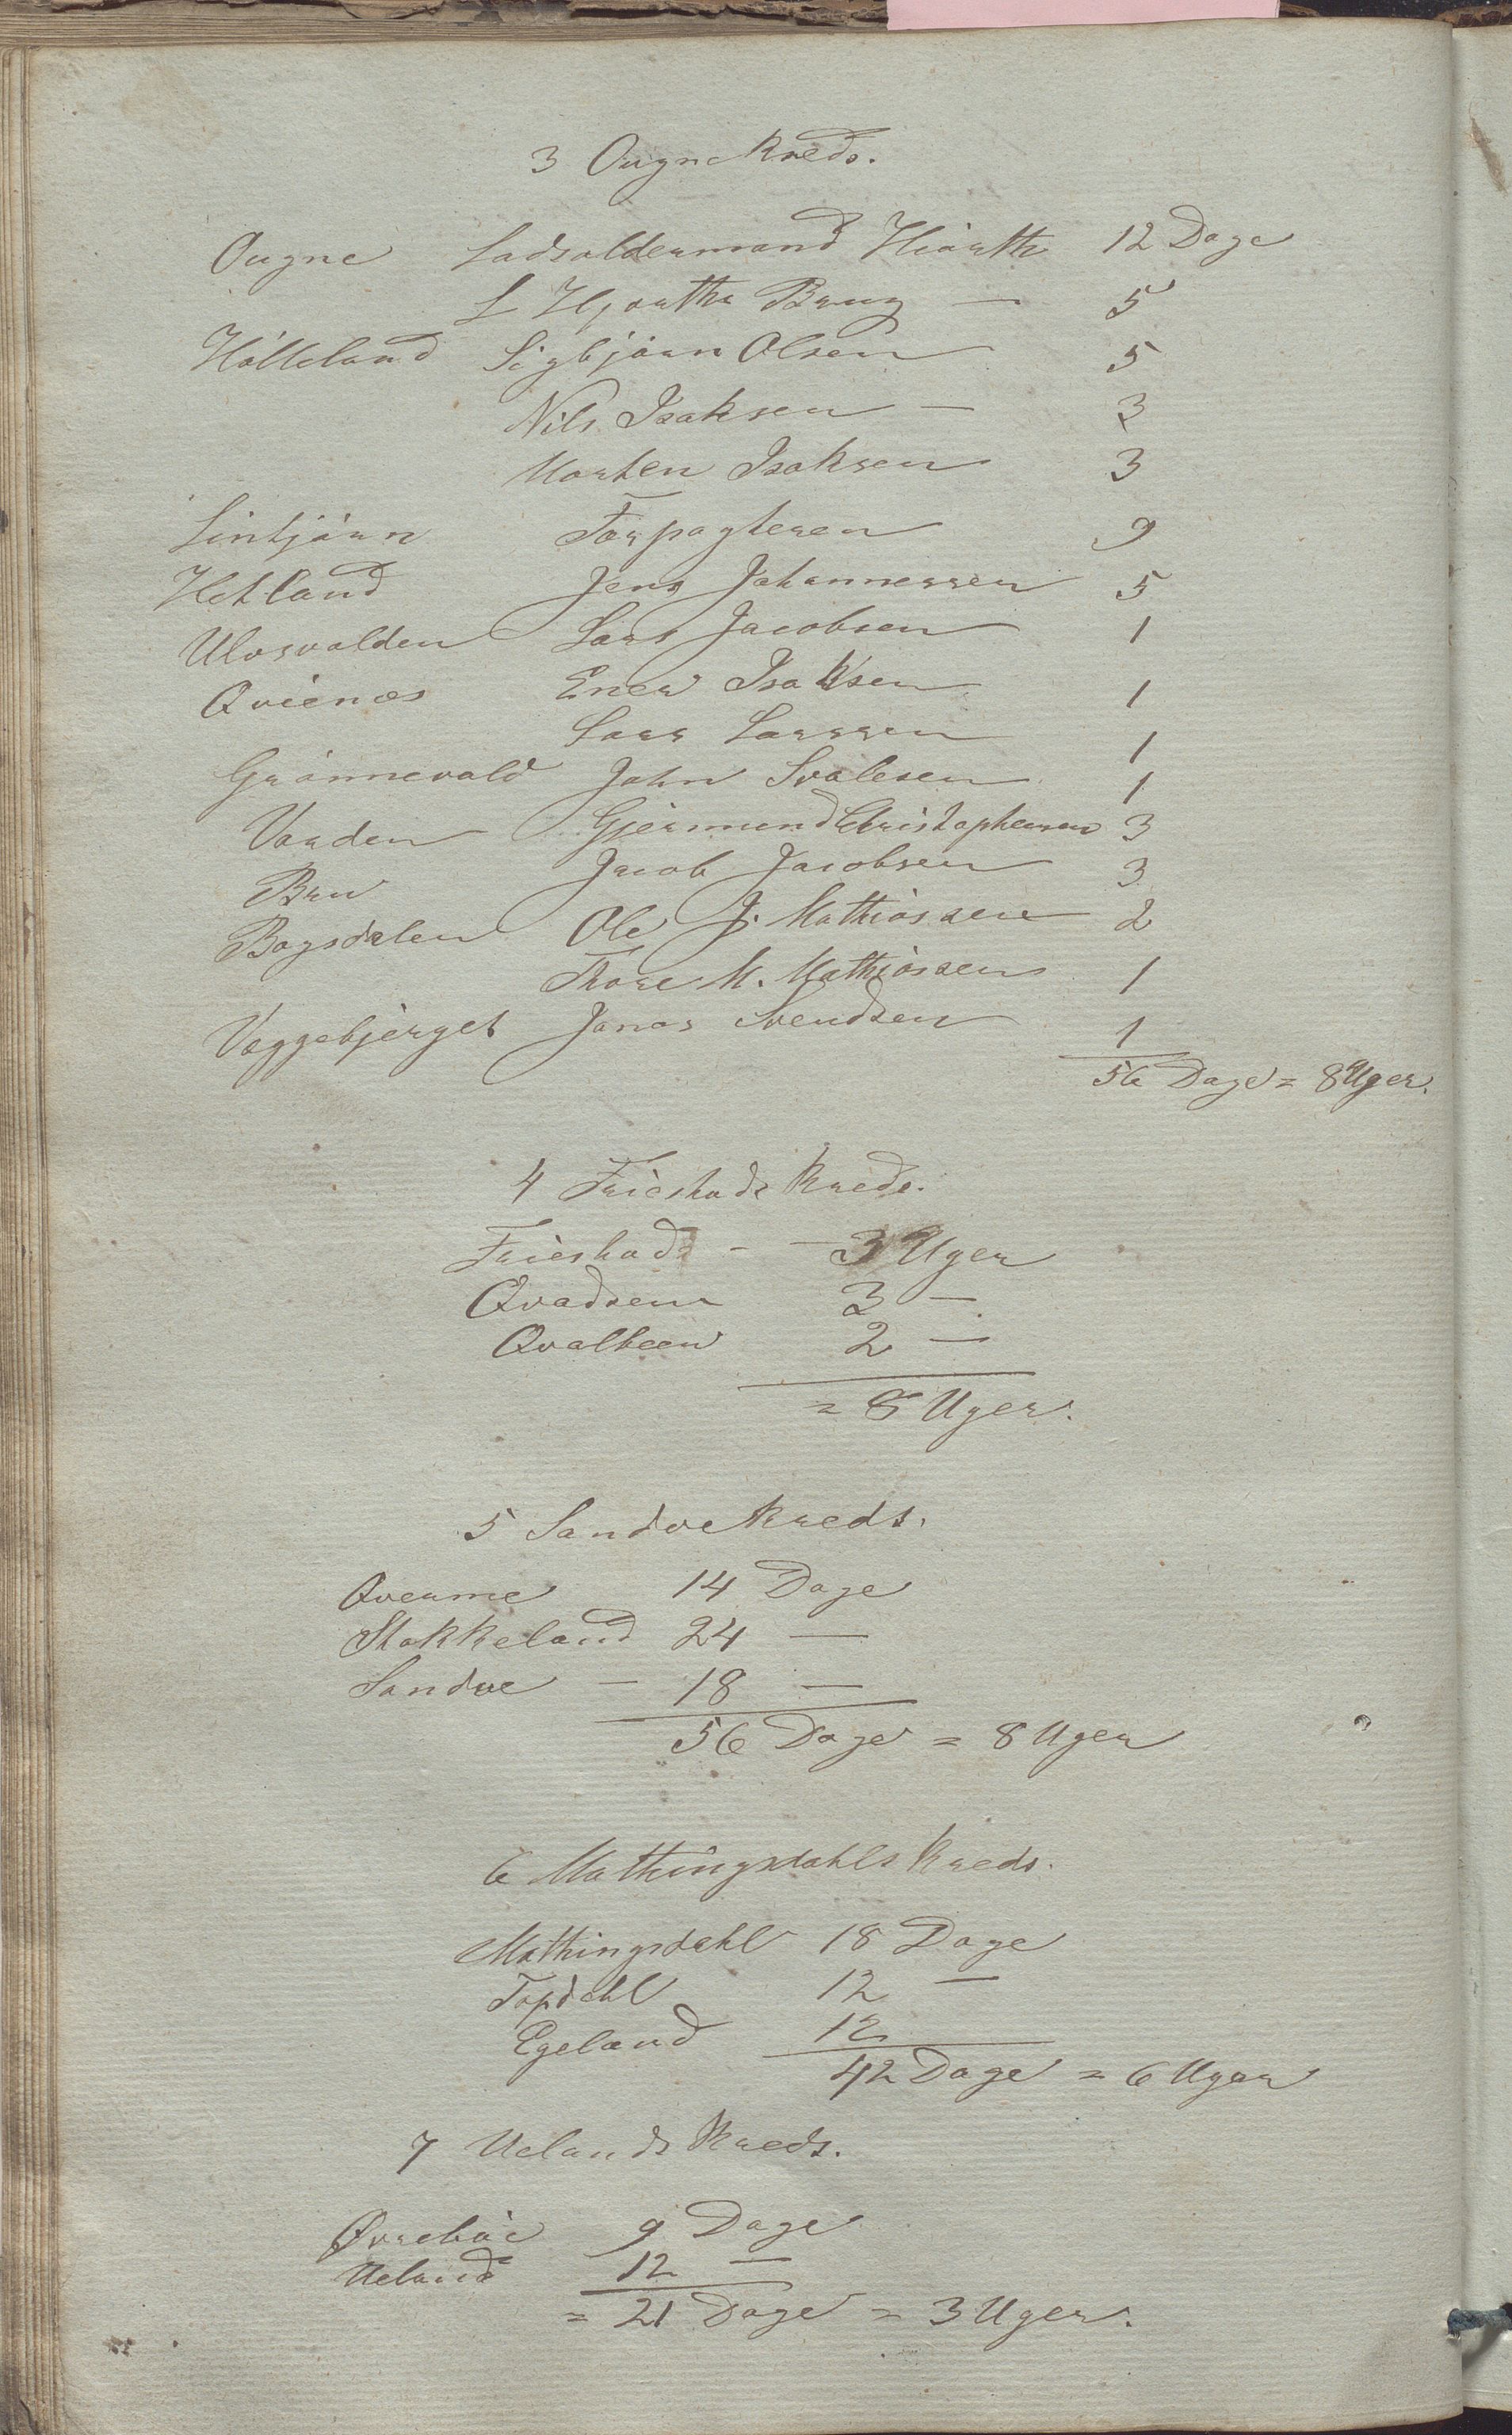 3 Ougne Kreds.
Ougne Ladsoldermand Hiorth 12 Dage
L Hjorths Brug — 5
Hölleland Sigbjörn Olsen 5
Nils Isaksen — 3
Morten Isaksen 3
Lintjörn Forpagteren 9
Hetland Jens Johannessen 5
Ulvsvolden Lars Jacobsen 1
Qvienes Ener Isaksen 1
Lars Larssen 1
Grönnevold John Svalesen 1
Varden Gjermund Christophersen 3
Bru Jacob Jacobsen 3
Bogsdalen Ole J. Mathiassen 2
Thore M. Mathiassen 1
Vaggebjerget Jonas Svendsen 1
56 Dage = 8 Uger.
4 Friestads Kreds.
Friestad - - 3 Uger
Qvadsem 3 —
Qvalbeen 2 —
= 8 Uger.
5 Sandve Kreds.
Qverme 14 Dage
Stokkeland 24 —
Sandve — 18 —
56 Dage = 8 Uger
6 Mathingsdahls Kreds.
Mathingsdahl 18 Dage
Topdahl 12 —
Egeland 12
42 Dage = 6 Uger
7 Uelands Kreds.
Øvreböe 9 Dage
Ueland 12 —
= 21 Dage = 3 Uger.